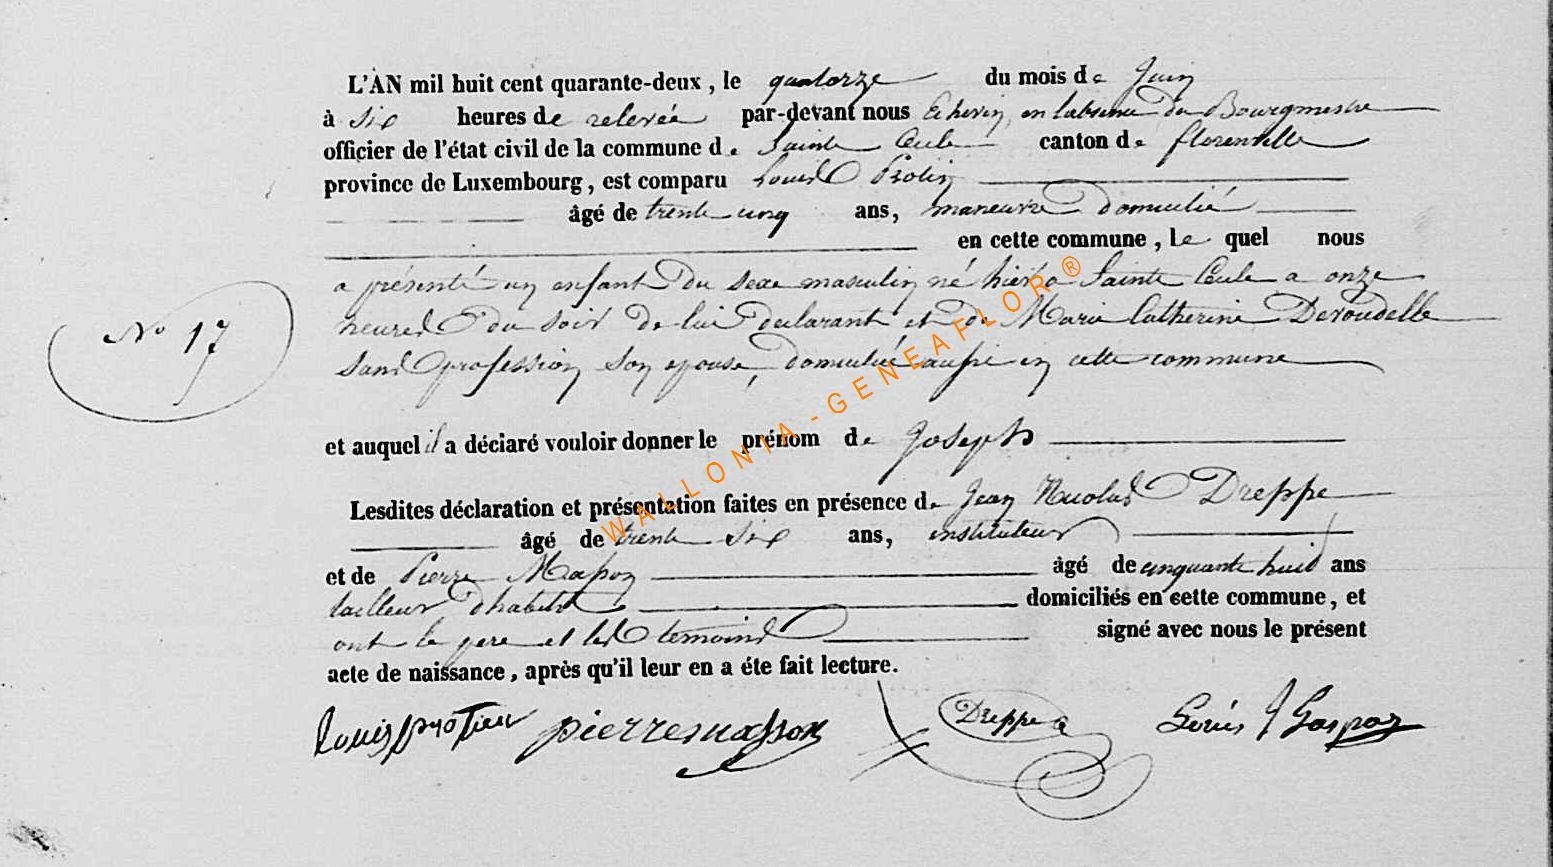 L'AN mil huit cent quarante-deux, le quatorze du mois de Juin
à six heures de relevée par-devant nous Echevin, en l'absence du Bourgmestre
officier de l'état civil de la commune de Sainte Cécile canton de florenville
province de Luxembourg, est comparu Louis Protin
âgé de trente cinq ans, manœuvre domicilié
en cette commune, le quel nous
a présenté un enfant du sexe masculin né hier a Sainte Cécile a onze
heures du soir de lui declarant et de Marie Catherine Devoudelle
sans profession son epouse, domiciliée aussi en cette commune
N° 17
et auquel il a déclaré vouloir donner le prénom de Joseph
Lesdites déclaration et présentation faites en présence de Jean Nicolas Dreppe
âgé de trente six ans, instituteur
et de Pierre Masson âgé de cinquante huit ans
tailleur d'habits domiciliés en cette commune, et
ont le pere et les temoins signé avec nous le présent
acte de naissance, après qu'il leur en a éte fait lecture.
Louis pierre masson Dreppe Louis J Gaspar
WALLONIA - GENEAFLOR ®